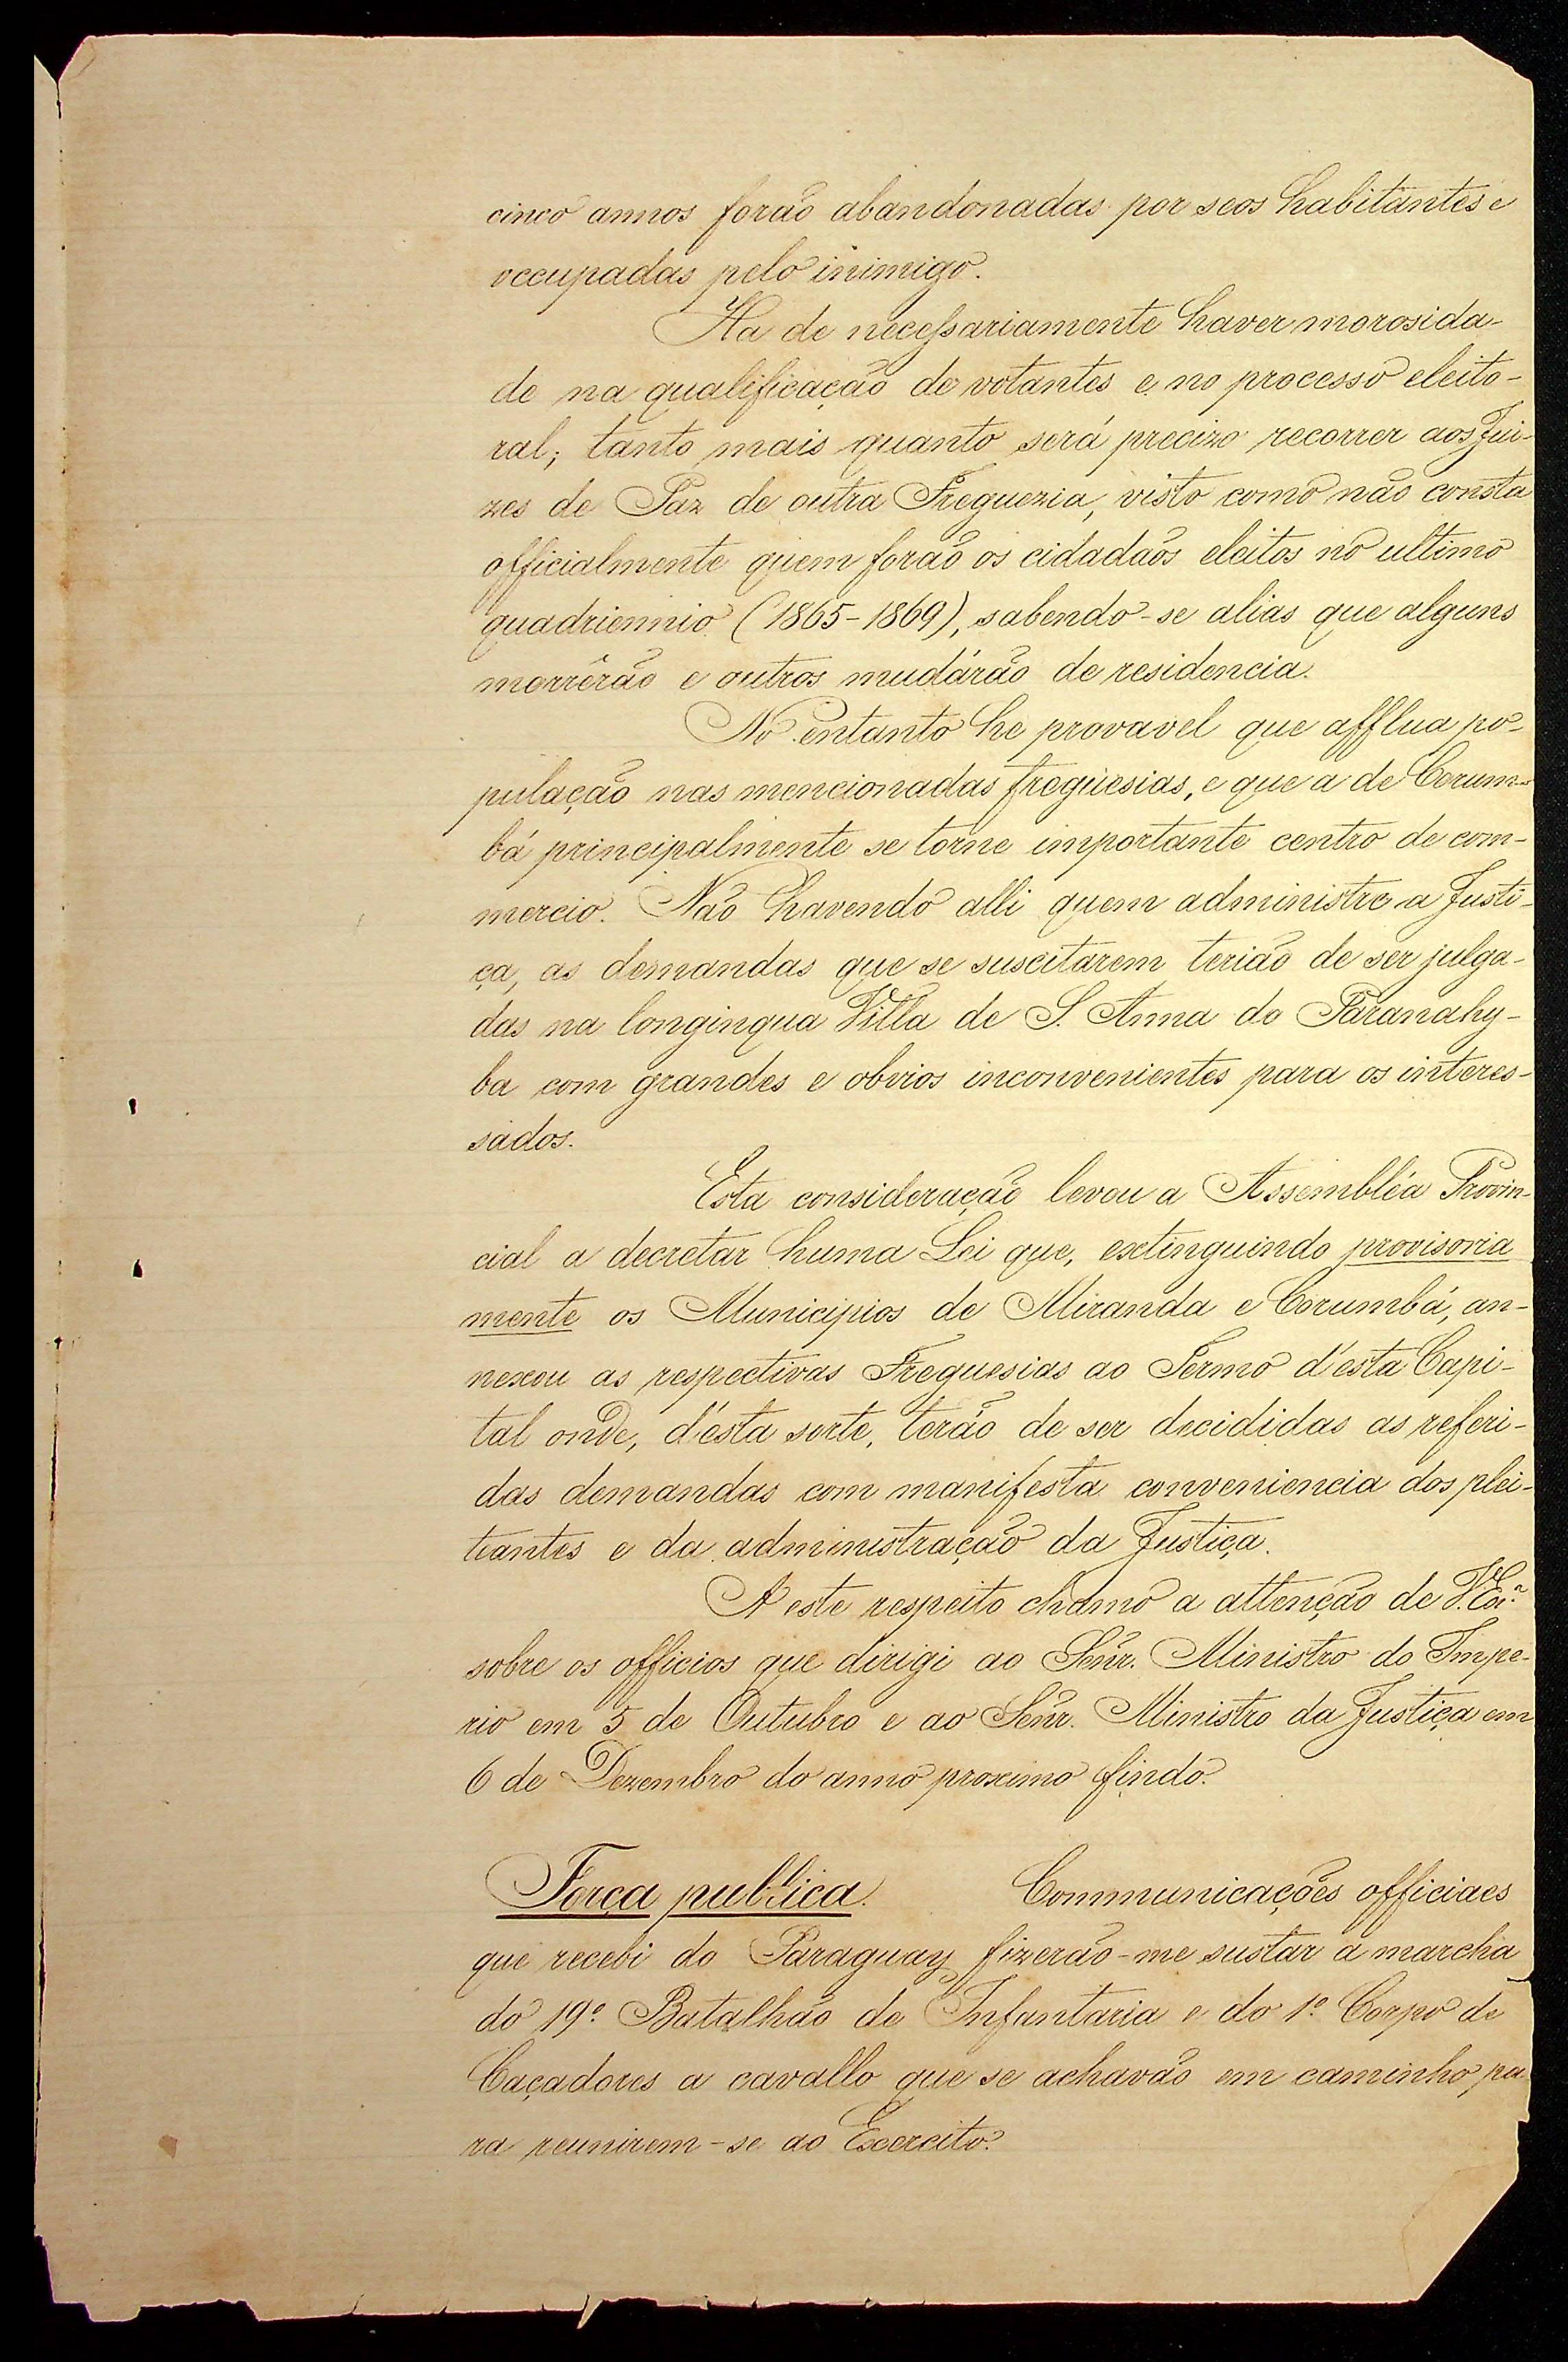 cinco annos forão abandonadas por seos habitantes e
occupadas pelo inimigo.
Ha de necessariamente haver morosida-
de na qualificação de votantes e no processo eleito-
ral; tanto mais quanto será precizo recorrer aos Jui-
zes de Paz de outra Freguezia, visto como não consta
officialmente quem forão os cidadãos eleitos no ultimo
quadriennio (1865-1869), sabendo-se alias que alguns
morrêrão e outros mudárão de residencia.
No entanto he provavel que afflua po-
pulação nas mencionadas freguesias, e que a de Corum-
bá principalmente se torne importante centro de com-
mercio. Não havendo alli quem administre a Justi-
ça, as demandas que se suscitarem terião de ser julga-
das na longinqua Villa de S. Anna do Paranahy-
ba com grandes e obvios inconvenientes para os interes-
sados.
Esta consideração levou a Assembléa Provin-
cial a decretar huma Lei que, extinguindo provisoria
mente os Municipios de Miranda e Corumbá, an-
nexou as respectivas Freguesias ao Termo d'esta Capi-
tal onde, d'esta sorte, terão de ser decididas as referi-
das demandas com manifesta conveniencia dos plei-
teantes e da administração da Justiça.
A este respeito chamo a attenção de V. Exª
sobre os officios que dirigi ao Senr. Ministro do Impe-
rio em 5 de Outubro e ao Senr. Ministro da Justiça em
6 de Dezembro do anno proximo findo.
Força publica. Communicações officiaes
que recebi do Paraguay fizerão-me sustar a marcha
do 19º Batalhão de Infantaria e do 1º Corpo de
Caçadores a cavallo que se achavão em caminho pa
ra reunirem-se ao Exercito.